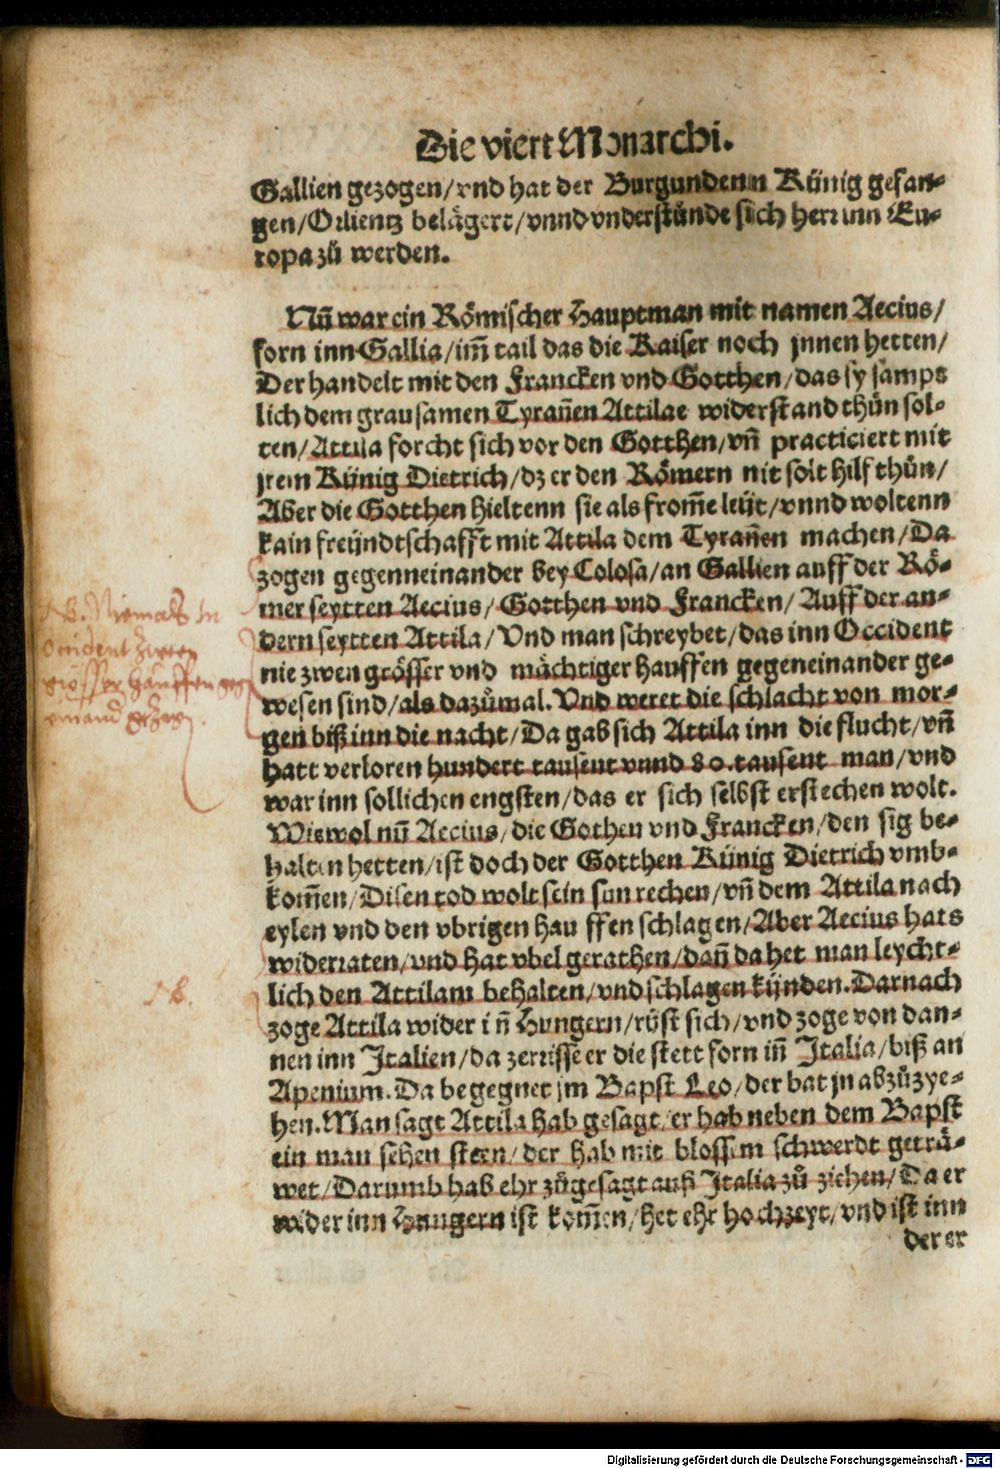 Die viert Monarchi.
Gallien gezogen/vnd hat der Burgundenn Künig gefan-
gen/Orlientz belägert/vnnd vnderstůnde sich herr inn Eu-
ropa zů werden.
Nũ war ein Römischer Hauptman mit namen Aecius/
forn inn Gallia/im̃ tail das die Kaiser noch jnnen hetten/
Der handelt mit den Francken vnd Gotthen/das sy sämps
lich dem grausamen Tyrañen Attilae widerstand thůn sol-
ten/Attila forcht sich vor den Gotthen/vñ practiciert mit
jrem Künig Dietrich/dz er den Römern nit solt hilf thůn/
Aber die Gotthen hieltenn sie als from̃e leüt/vnnd woltenn
kain freündtschafft mit Attila dem Tyrañen machen/Da
zogen gegenneinander bey Colosa/an Gallien auff der Rö-
mer seytten Aecius/Gotthen vnd Francken/Auff der an-
dern seytten Attila/Vnd man schreybet/das inn Occident
nie zwen grösser vnd mächtiger hauffen gegeneinander ge-
wesen sind/als dazůmal. Vnd weret die schlacht von mor-
gen biß inn die nacht/Da gab sich Attila inn die flucht/vñ
hatt verloren hundert tausent vnnd 80. tausent man/vnd
war inn sollichen engsten/das er sich selbst erstechen wolt.
Wiewol nũ Aecius/die Gothen vnd Francken/den sig be-
halten hetten/ist doch der Gotthen Künig Dietrich vmb-
kom̃en/Disen tod wolt sein sun rechen/vñ dem Attila nach
eylen vnd den vbrigen hau ffen schlagen/Aber Aecius hats
widerraten/vnd hat vbel gerathen/dañ da het man leycht-
lich den Attilam behalten/vnd schlagen künden. Darnach
zoge Attila wider iñ Hungern/rüst sich/vnd zoge von dan-
nen inn Italien/da zerrisse er die stett forn iñ Italia/biß an
Apenium. Da begegnet jm Bapst Leo/der bat jn abzůzye-
hen. Man sagt Attila hab gesagt/er hab neben dem Bapst
ein man sehen steen/der hab mit blossem schwerdt geträ-
wet/Darumb hab ehr zůgesagt auß Italia zů ziehen/Da er
wider inn Hungern ist kom̃en/het ehr hochzeyt/vnd ist inn
der er
NB. Niemals in
Occident zween
grösser hauffen geg
NB.
Digitalisierung gefördert durch die Deutsche Forschungsgemeinschaft - DFG